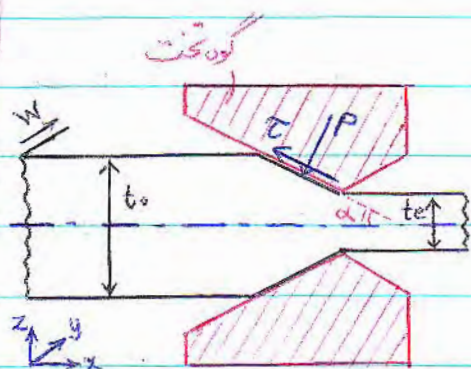 گوه تخت
W
τ P
t₀
α
te
z y
x